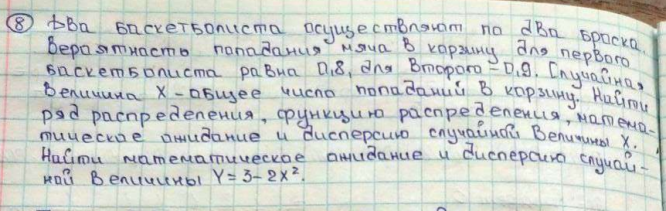 ⑧ Два баскетболиста осуществляют по два броска.
Вероятность попадания мяча в корзину для первого
баскетболиста равна 0,8, для второго – 0,9. Случайная
величина X – общее число попаданий в корзину. Найти
ряд распределения, функцию распределения, матема-
тическое ожидание и дисперсию случайной величины X.
Найти математическое ожидание и дисперсию случай-
ной величины Y = 3 – 2X².